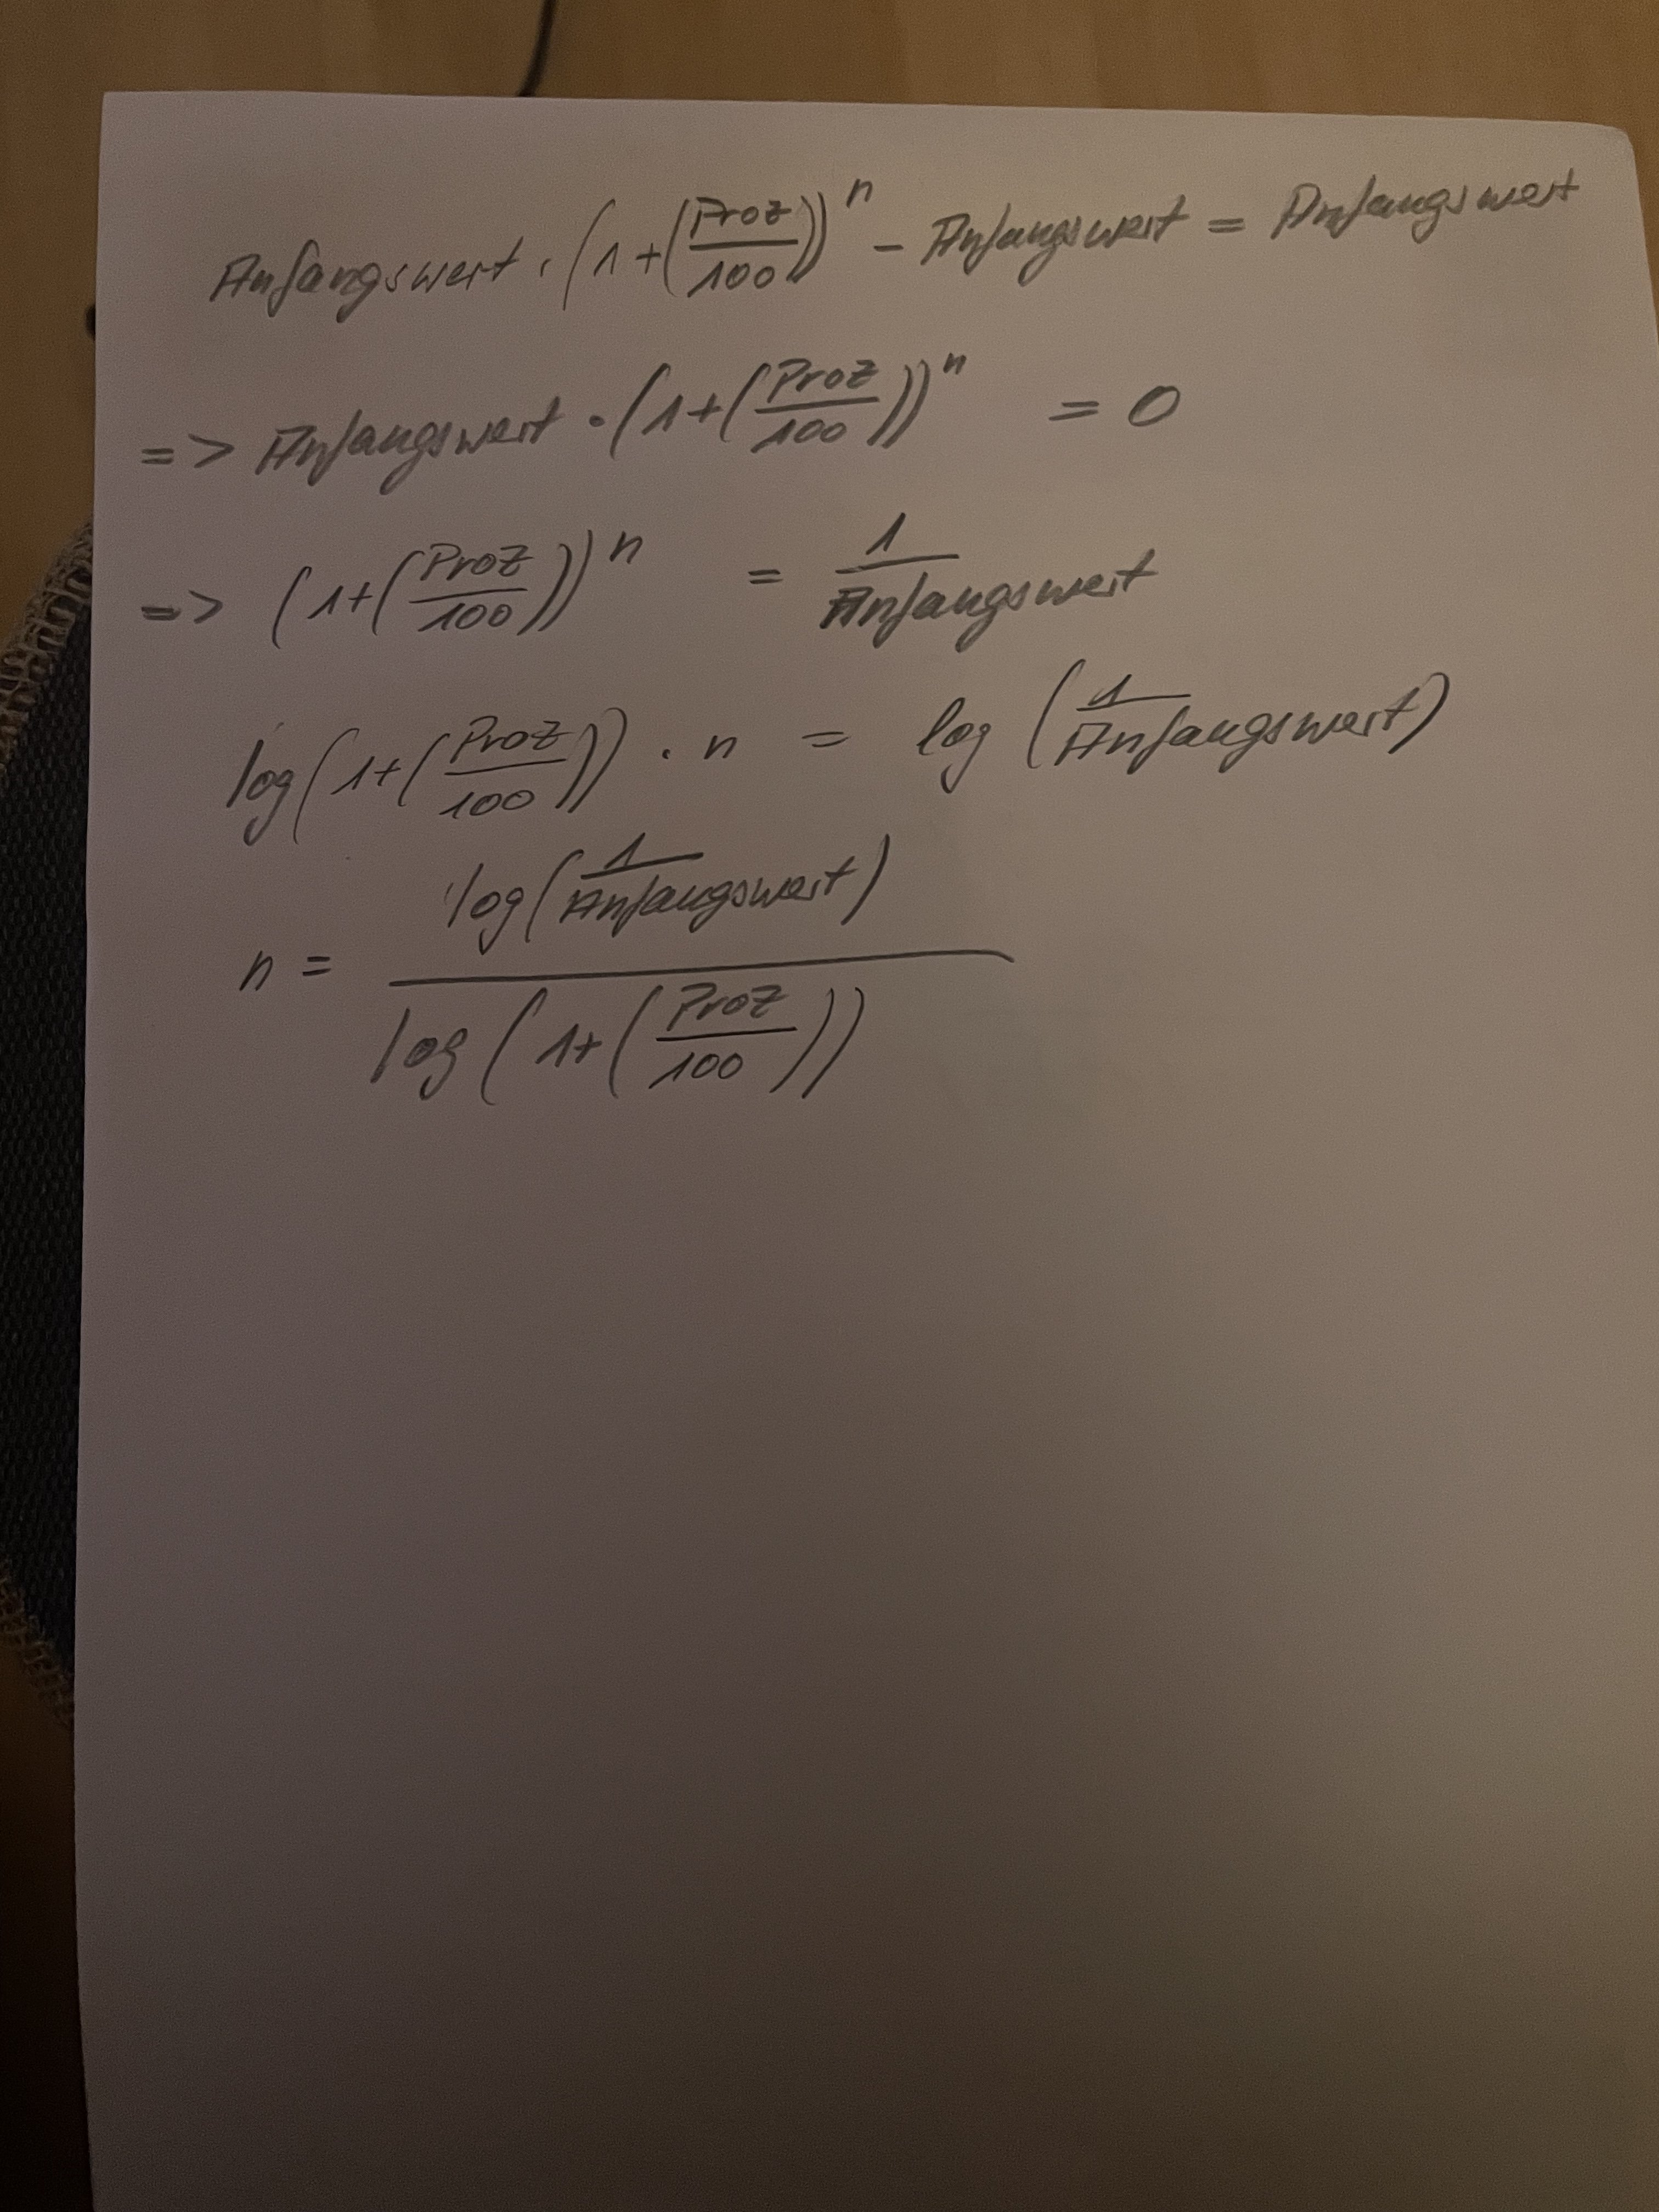 Anfangswert · (1 + (Proz/100))^n - Anfangswert = Anfangswert
=> Anfangswert · (1 + (Proz/100))^n = 0
=> (1 + (Proz/100))^n = 1/Anfangswert
log(1 + (Proz/100)) · n = log(1/Anfangswert)
n = log(1/Anfangswert) / log(1 + (Proz/100))